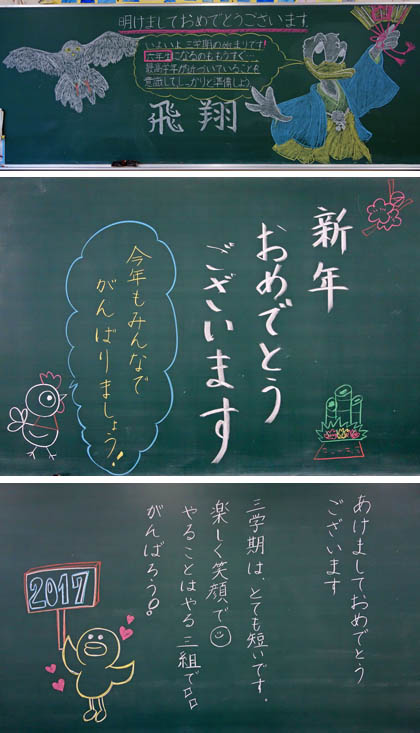 明けましておめでとうございます
いよいよ三学期の始まりです
六年生になるのももうすぐ…
最高学年が近づいていることを
意識してしっかりと準備しよう
飛翔
新年
おめでとう
ございます
今年もみんなで
がんばりましょう!
あけましておめでとう
ございます
三学期は、とても短いです。
楽しく笑顔で
やることはやる三組で
がんばろう!
2017